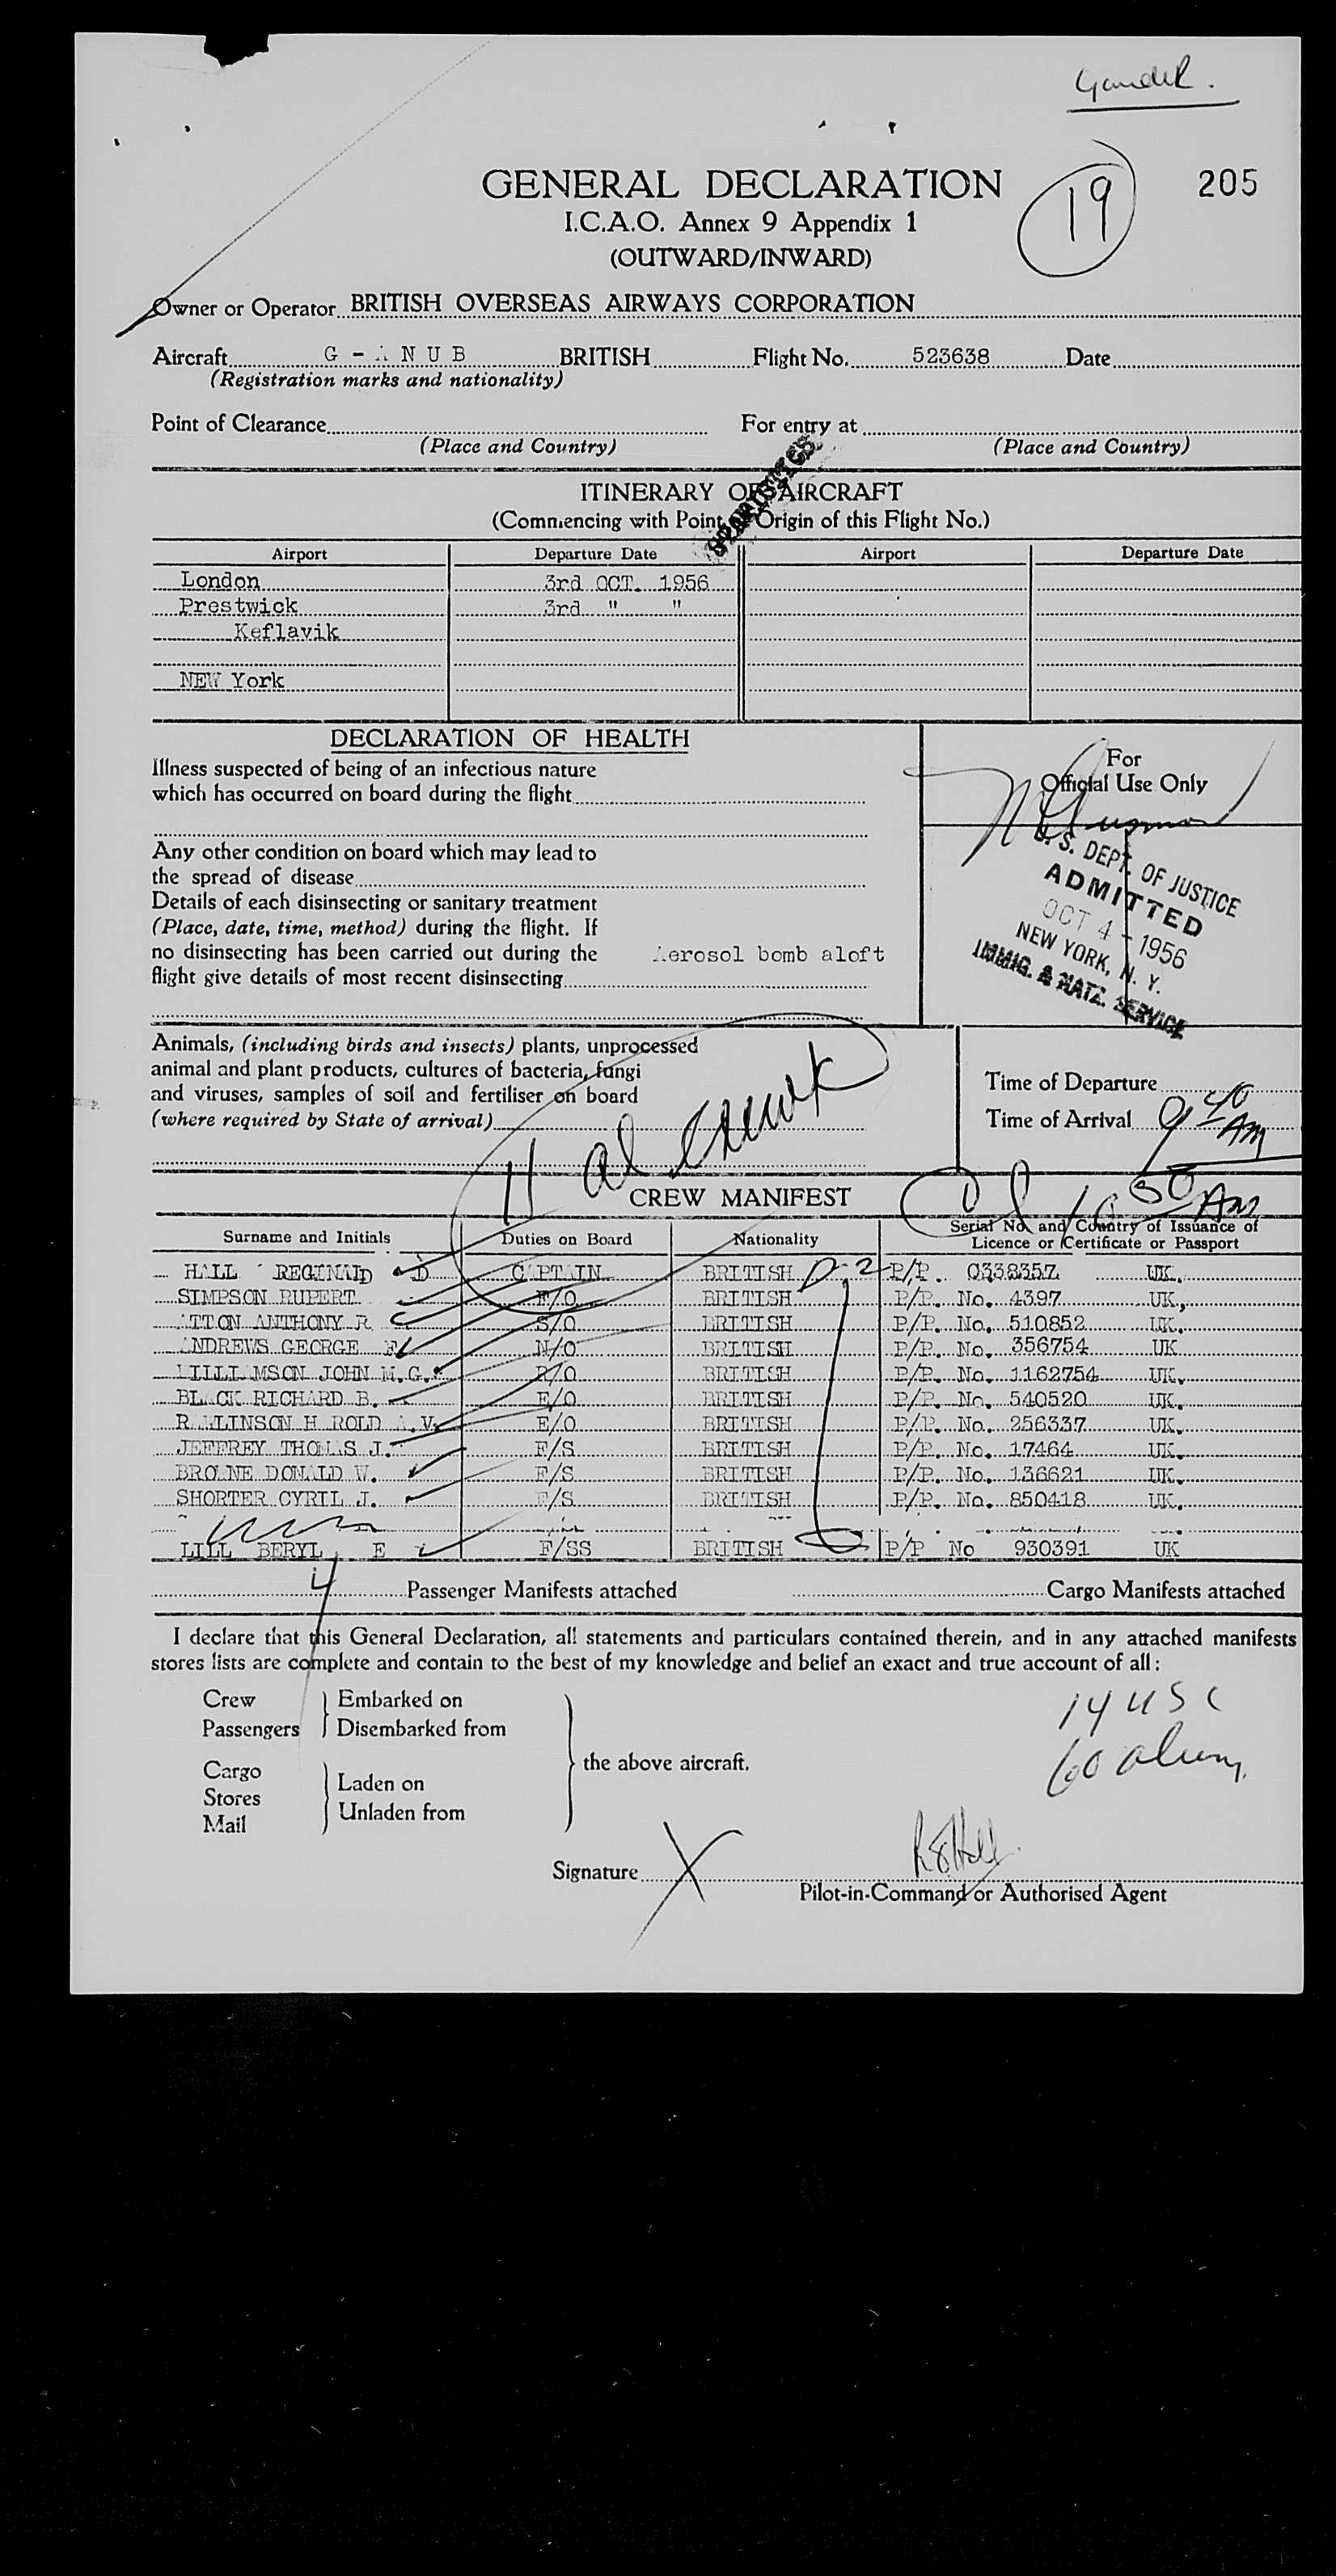 Gander.
GENERAL DECLARATION
19
205
I.C.A.O. Annex 9 Appendix 1
(OUTWARD/INWARD)
Owner or Operator BRITISH OVERSEAS AIRWAYS CORPORATION
Aircraft G - A N U B BRITISH Flight No. 523638 Date
(Registration marks and nationality)
Point of Clearance For entry at
(Place and Country) (Place and Country)
ITINERARY OF AIRCRAFT
(Commencing with Point Origin of this Flight No.)
Airport Departure Date Airport Departure Date
London 3rd OCT. 1956
Prestwick 3rd " "
Keflavik
NEW York
DECLARATION OF HEALTH
Illness suspected of being of an infectious nature
which has occurred on board during the flight
Any other condition on board which may lead to
the spread of disease
Details of each disinsecting or sanitary treatment
(Place, date, time, method) during the flight. If
no disinsecting has been carried out during the Aerosol bomb aloft
flight give details of most recent disinsecting
For
Official Use Only
U. S. DEPT. OF JUSTICE
ADMITTED
OCT 4 - 1956
NEW YORK, N. Y.
IMMIG. & NATZ. SERVICE
Animals, (including birds and insects) plants, unprocessed
animal and plant products, cultures of bacteria, fungi
and viruses, samples of soil and fertiliser on board
(where required by State of arrival)
Time of Departure
Time of Arrival 9 40 AM
11 al crew
10 50 AM
CREW MANIFEST
Surname and Initials Duties on Board Nationality Serial No. and Country of Issuance of
Licence or Certificate or Passport
HALL REGINALD D CAPTAIN BRITISH D-2 P/P. 0338357 UK.
SIMPSON RUPERT F/O BRITISH P/P. No. 4397 UK,
ATTON ANTHONY R S/O BRITISH P/P. No. 510852 UK.
ANDREWS GEORGE F N/O BRITISH P/P. No. 356754 UK
WILLIAMSON JOHN M.G. R/O BRITISH P/P. No. 1162754 UK.
BLACK RICHARD B. E/O BRITISH P/P. No. 540520 UK.
RAWLINSON HAROLD A.V. E/O BRITISH P/P. No. 256337 UK.
JEFFREY THOMAS J. F/S BRITISH P/P. No. 17464 UK.
BROWNE DONALD W. F/S BRITISH P/P. No. 136621 UK.
SHORTER CYRIL J. F/S BRITISH P/P. No. 850418 UK.
LILL BERYL E F/SS BRITISH P/P No 930391 UK
4 Passenger Manifests attached Cargo Manifests attached
I declare that this General Declaration, all statements and particulars contained therein, and in any attached manifests
stores lists are complete and contain to the best of my knowledge and belief an exact and true account of all:
Crew Embarked on
Passengers Disembarked from
Cargo
Stores Laden on
Mail Unladen from
the above aircraft.
14 USC
60 alien
Signature X R D Hall
Pilot-in-Command or Authorised Agent